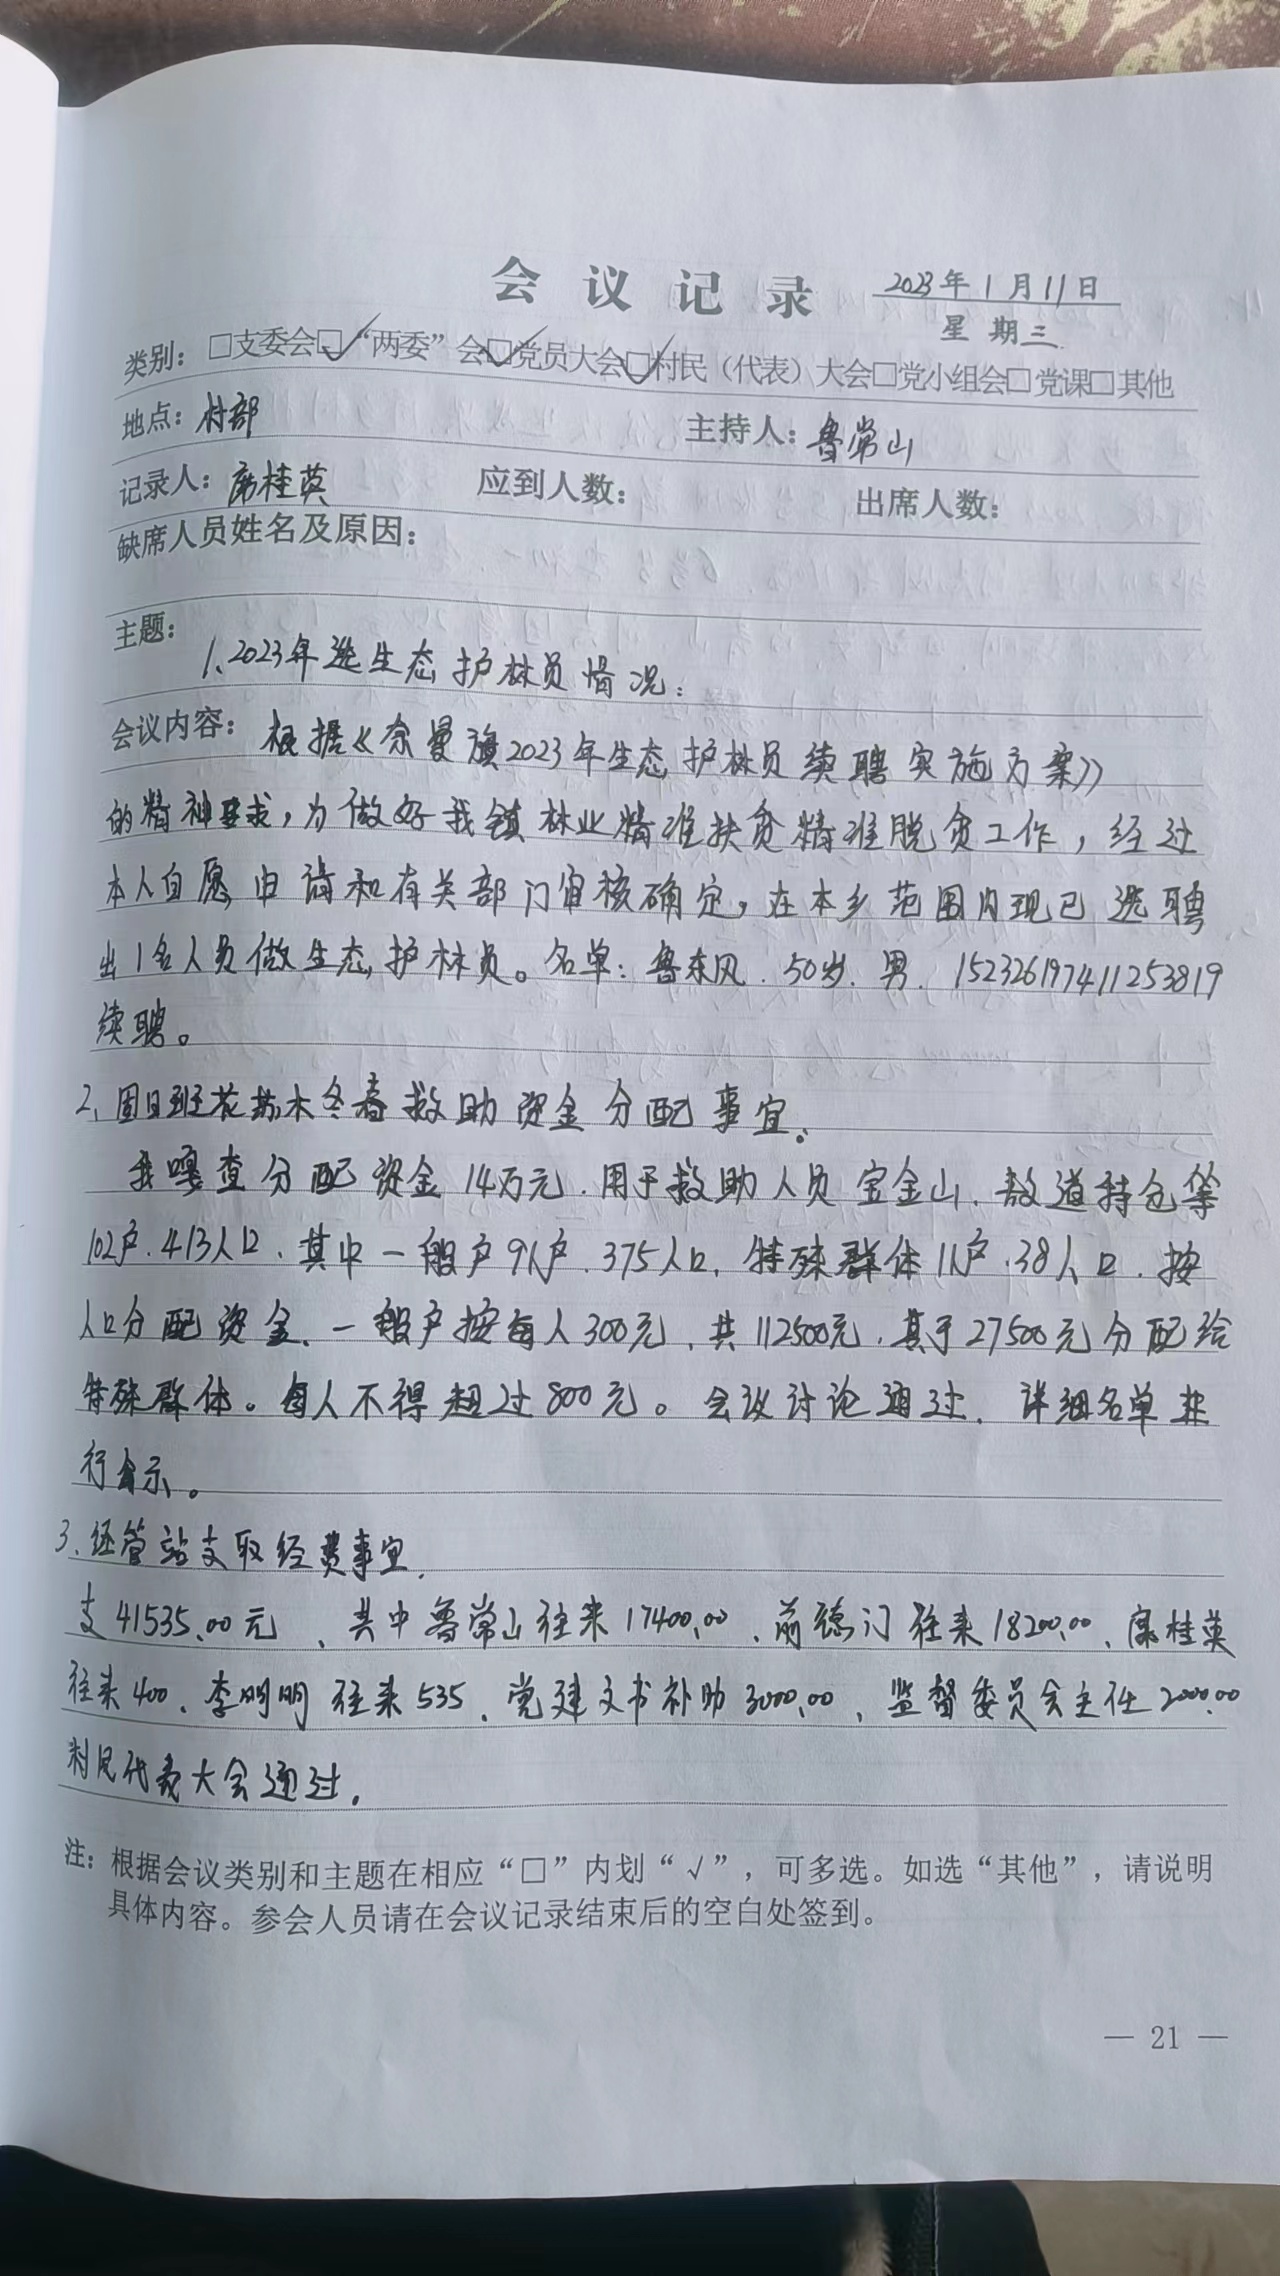 会议记录 2023年1月11日
星期三
类别：□支委会☑“两委”会☑党员大会☑村民（代表）大会□党小组会□党课□其他
地点：村部 主持人：鲁常山
记录人：席桂英 应到人数： 出席人数：
缺席人员姓名及原因：
主题：
1、2023年选生态护林员情况：
会议内容：根据《奈曼旗2023年生态护林员续聘实施方案》
的精神要求，为做好我镇林业精准扶贫精准脱贫工作，经过
本人自愿申请和有关部门审核确定，在本乡范围内现已选聘
出1名人员做生态护林员。名单：鲁东风.50岁.男.152326197411253819
续聘。
2、固日班花苏木冬春救助资金分配事宜。
我嘎查分配资金14万元.用于救助人员宝金山、敖道特仓等
102户.413人口、其中一般户91户.375人口，特殊群体11户.38人口.按
人口分配资金、一般户按每人300元，共112500元.其于27500元分配给
特殊群体。每人不得超过800元。会议讨论通过、详细名单张
行公示。
3、经管站支取经费事宜.
支41535.00元、其中鲁常山往来17400.00、前德门往来18200.00、席桂英
往来400、李明明往来535、党建文书补助3000.00、监督委员会主任2000.00
村民代表大会通过.
注：根据会议类别和主题在相应“□”内划“√”，可多选。如选“其他”，请说明
具体内容。参会人员请在会议记录结束后的空白处签到。
— 21 —